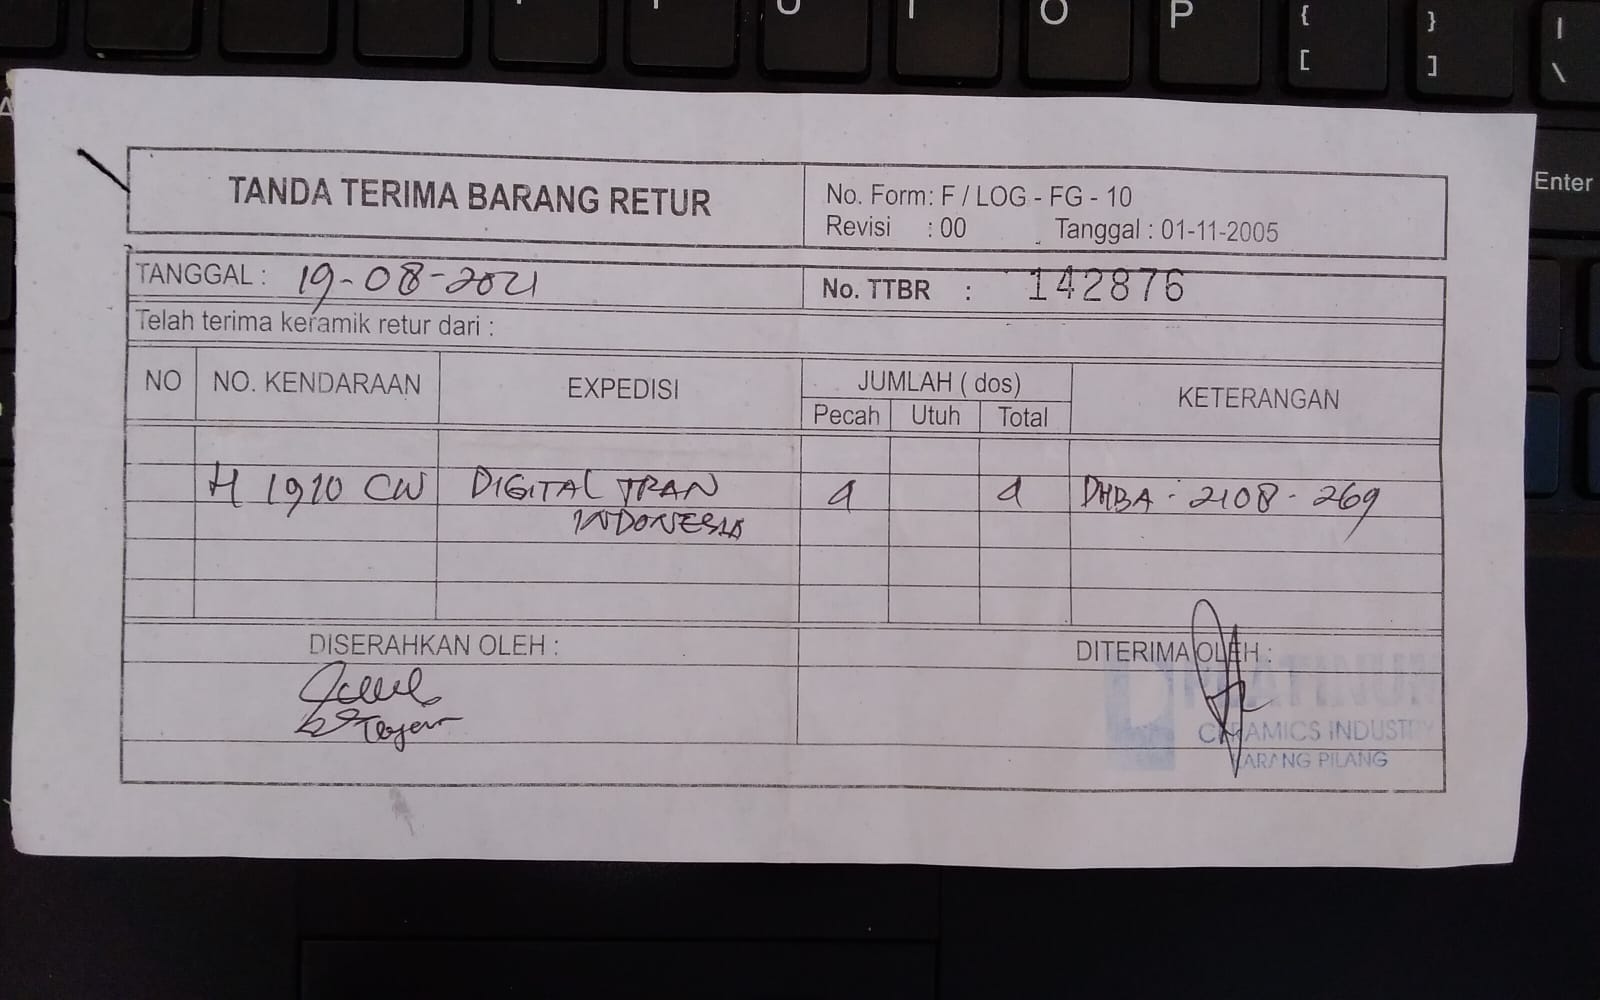 U I O P { [ } ] | \
Enter
TANDA TERIMA BARANG RETUR
No. Form: F / LOG - FG - 10
Revisi : 00 Tanggal : 01-11-2005
TANGGAL : 19-08-2021
No. TTBR : 142876
Telah terima keramik retur dari :
NO NO. KENDARAAN EXPEDISI JUMLAH ( dos) KETERANGAN
Pecah Utuh Total
H 1910 CW DIGITAL TRAN DHBA - 2108 - 269
INDONESIA
DISERAHKAN OLEH : DITERIMA OLEH :
CERAMICS INDUSTRY
KARANG PILANG